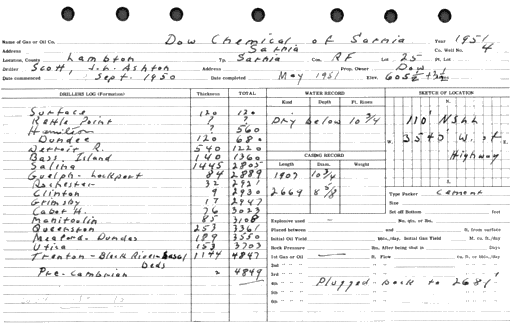 Name of Gas or Oil Co. Dow Chemical of Sarnia Year 1951
Address Sarnia Co. Well No. 4
Location, County Lambton Tp. Sarnia Con. RF Lot 25 Pt. Lot
Driller Scott, J.L. Ashton Address Prop. Owner Dow
Date commenced Sept. 1950 Date completed May 1951 Elev. 605½ + 3½
DRILLERS LOG (Formation) Thickness TOTAL WATER RECORD SKETCH OF LOCATION
Kind Depth Ft. Rose N.
Surface 120 120
Kettle Point ? ? Dry below 10 3/4 110' NSHL
Hamilton ? 560 3540' W. of
Dundee 120 680 W. E.
Detroit R. 540 1220 Highway
Bass Island 140 1360 CASING RECORD
Salina 1445 2805 Length Diam. Weight
Guelph - Lockport 84 2889 1907 10 3/4
Rochester 32 2921 S.
Clinton 9 2930 2669 8 5/8 Type Packer Cement
Grimsby 17 2947 Size
Cabot H. 76 3023 Set off Bottom feet
Manitoulin 85 3108 Explosive used — No. qts. or lbs.
Queenston 253 3361 Placed between and ft. from surface
Meaford - Dundas 189 3550 Initial Oil Yield bbls./day. Initial Gas Yield M. cu. ft./day
Utica 153 3703 Rock Pressure lbs. After being shut in Days
Trenton - Black River Basal 1144 4847 1st Gas or Oil — ft. Flow cu. ft. or bbls./day
Beds 2nd " " "
Pre-Cambrian 2 4849 3rd " " "
4th " " " Plugged back to 2681'
5th " " "